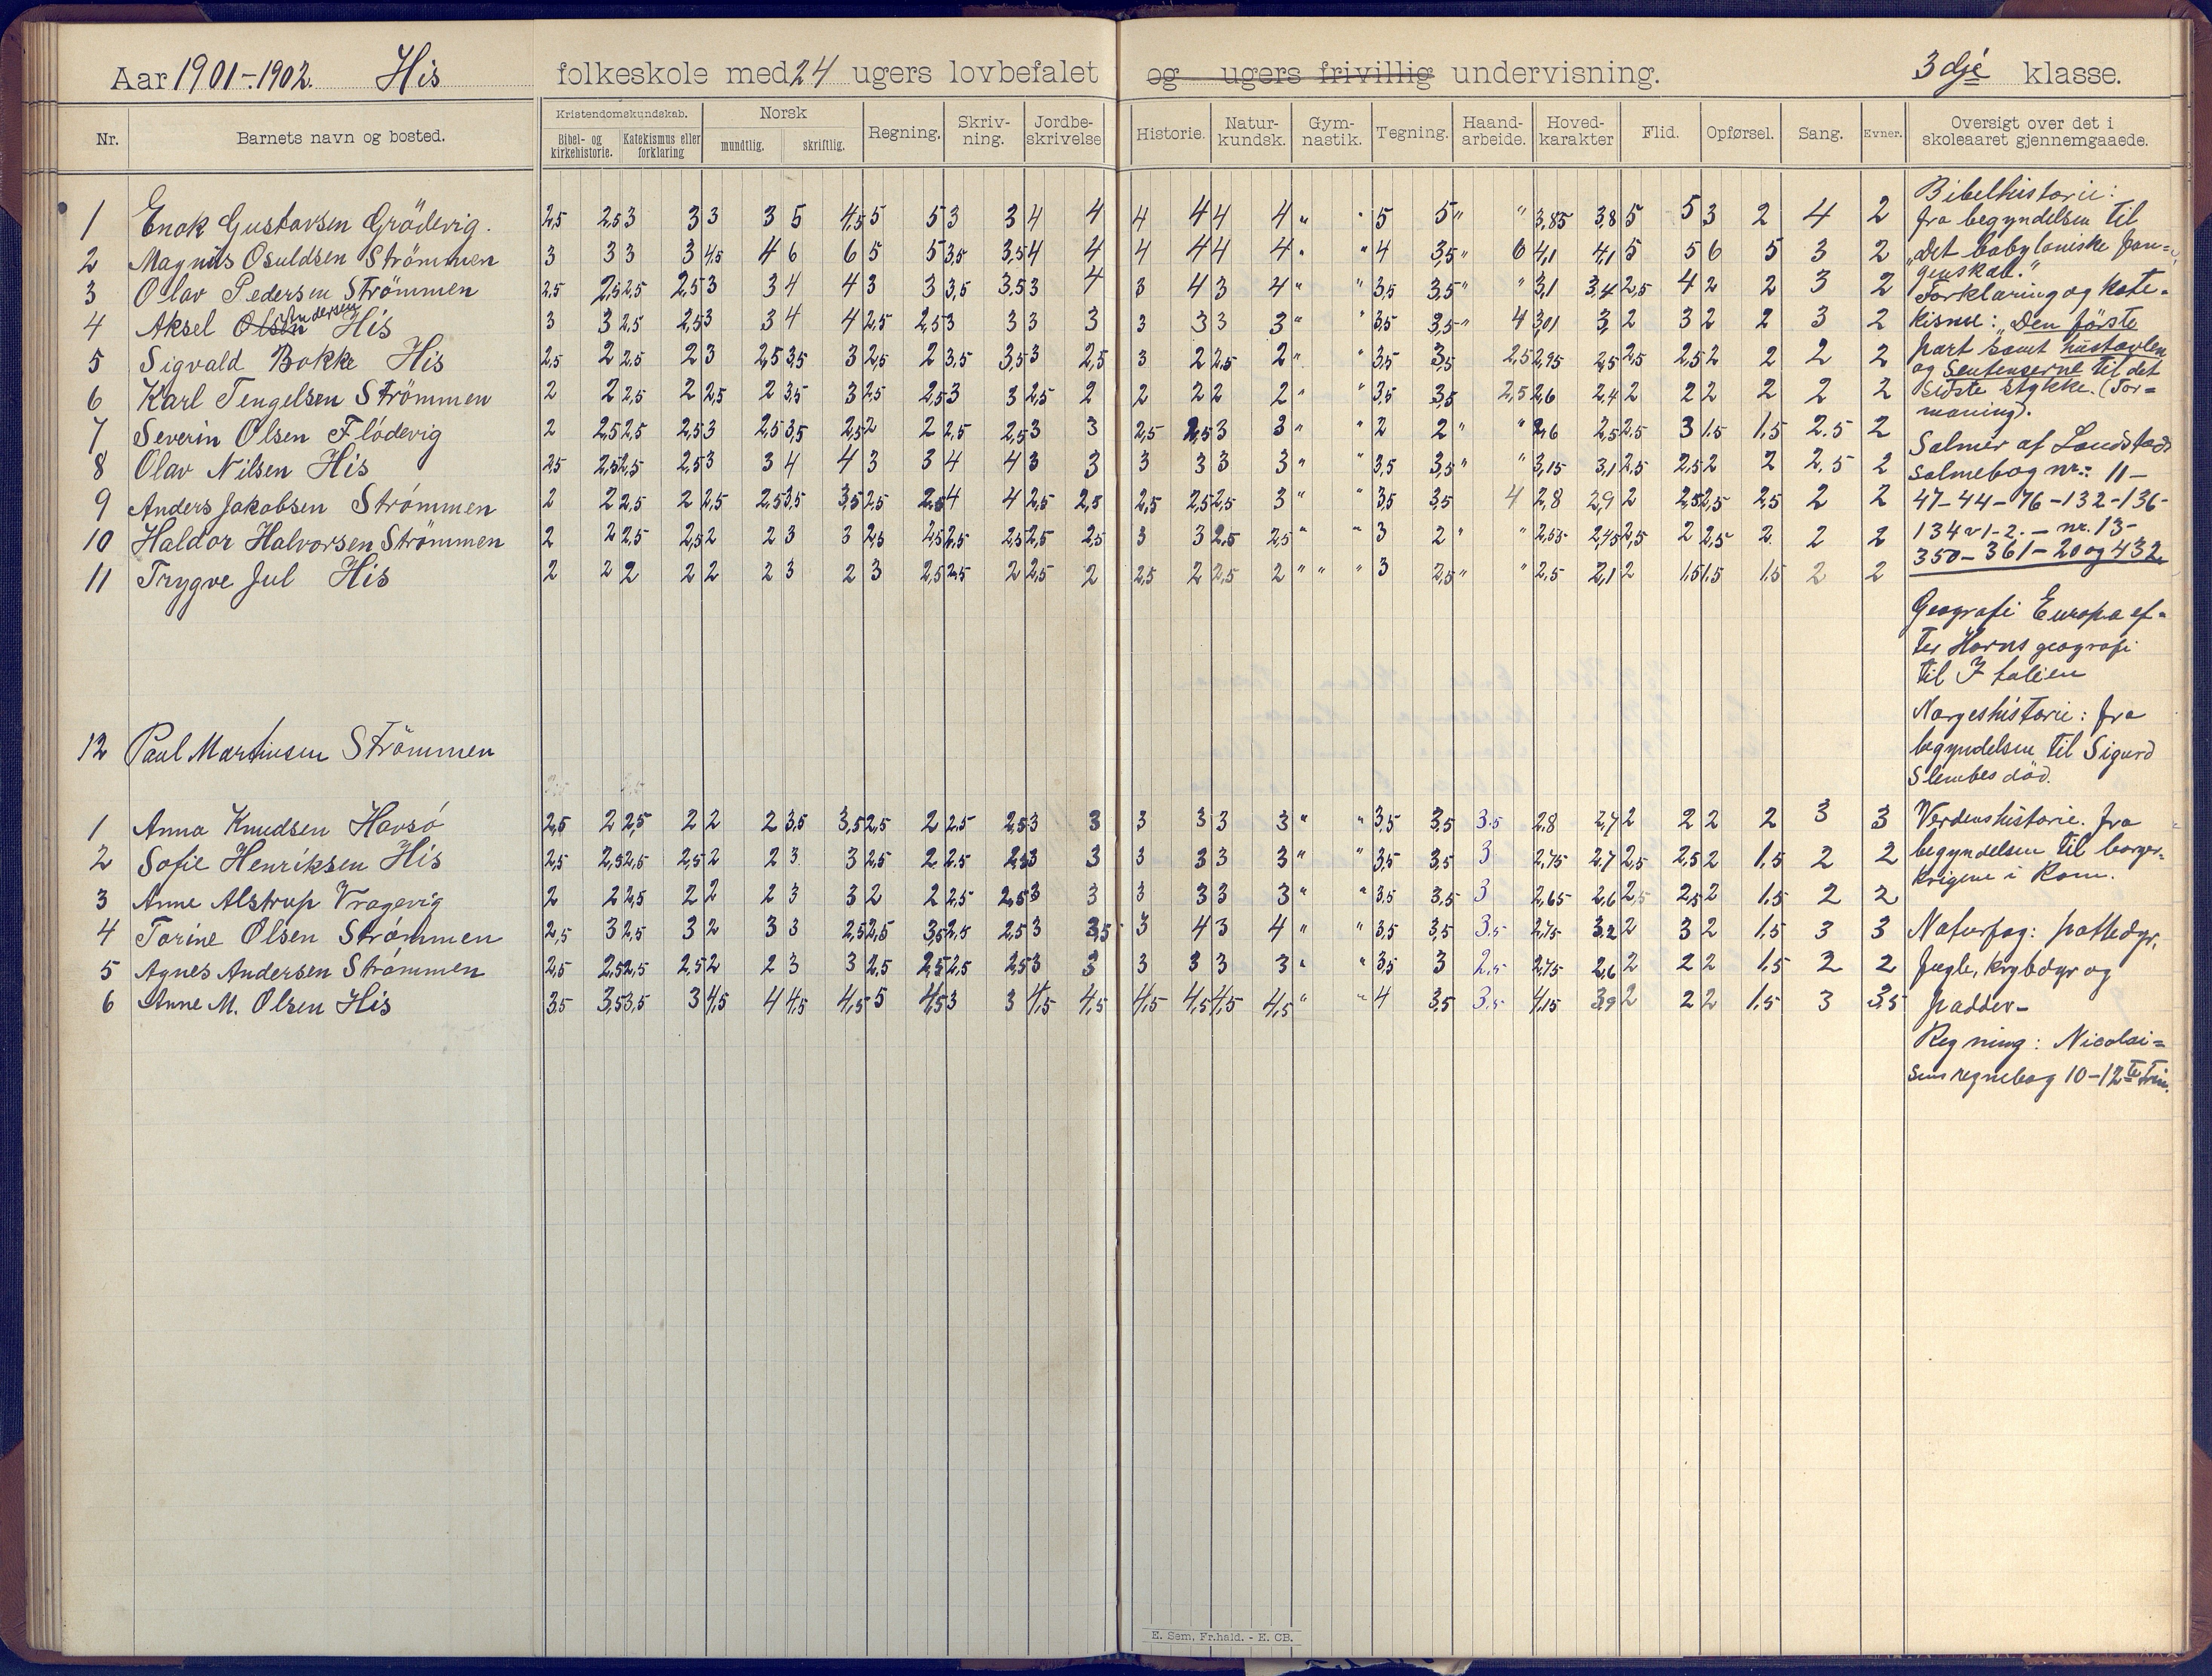 Aar 1901-1902. His folkeskole med 24 ugers lovbefalet og ugers frivillig undervisning. 3dje klasse.
Nr. Barnets navn og bosted. Kristendomskundskab. Bibel- og kirkehistorie. Katekismus eller forklaring Norsk mundtlig. skriftlig. Regning. Skriv-ning. Jordbe-skrivelse Historie. Natur-kundsk. Gym-nastik. Tegning. Haand-arbeide. Hoved-karakter Flid. Opførsel. Sang. Evner. Oversigt over det i skoleaaret gjennemgaaede.
1 Enok Gustavsen Grödevig. 2,5 2,5 3 3 3 3 5 4,5 5 5 3 3 4 4 4 4 4 4 " " 5 5 " " 3,85 3,8 5 5 3 2 4 2
2 Magnus Osuldsen Strömmen 3 3 3 3 4,5 4 6 6 5 5 3,5 3,5 4 4 4 4 4 4 " " 4 3,5 " 6 4,1 4,1 5 5 6 5 3 2
3 Olav Pedersen Strömmen 2,5 2,5 2,5 2,5 3 3 4 4 3 3 3,5 3,5 3 4 3 4 3 4 " " 3,5 3,5 " " 3,1 3,4 2,5 4 2 2 3 2
4 Aksel Olsen Andersen His 3 3 2,5 2,5 3 3 4 4 2,5 2,5 3 3 3 3 3 3 3 3 " " 3,5 3,5 " 4 3,01 3 2 3 2 2 3 2
5 Sigvald Bakke His 2,5 2 2,5 2 3 2,5 3,5 3 2,5 2 3,5 3,5 3 2,5 3 2 2,5 2 " " 3,5 3,5 2,5 2,95 2,5 2,5 2,5 2 2 2 2
6 Karl Tengelsen Strömmen 2 2 2,5 2 2,5 2 3,5 3 2,5 2,5 3 3 2,5 2 2 2 2 2 " " 3,5 3,5 2,5 2,6 2,4 2 2 2 2 2 2
7 Severin Olsen Flödevig 2 2,5 2,5 2,5 3 2,5 3,5 2,5 2 2 2,5 2,5 3 3 2,5 2,5 3 3 " " 2 2 " " 2,6 2,5 2,5 3 1,5 1,5 2.5 2
8 Olav Nilsen His 2,5 2,5 2,5 2,5 3 3 4 4 3 3 4 4 3 3 3 3 3 3 " " 3,5 3,5 " " 3,15 3,1 2,5 2,5 2 2 2,5 2
9 Anders Jakobsen Strömmen 2 2 2,5 2 2,5 2,5 3,5 3,5 2,5 2,5 4 4 2,5 2,5 2,5 2,5 2,5 3 " " 3,5 3,5 4 2,8 2,9 2 2,5 2,5 2,5 2 2
10 Haldor Halvorsen Strömmen 2 2 2,5 2,5 2 2 3 3 2,5 2,5 2,5 2,5 2,5 2,5 3 3 2,5 2,5 " " 3 2 " " 2,55 2,45 2,5 2 2,5 2 2 2
11 Trygve Jul His 2 2 2 2 2 2 3 2 3 2,5 2,5 2 2,5 2 2,5 2 2,5 2 " " " 3 2,5 " " 2,5 2,1 2 1,5 1,5 1,5 2 2
12 Paul Martinsen Strömmen
1 Anna Knudsen Havsö 2,5 2 2,5 2 2 2 3,5 3,5 2,5 2 2,5 2,5 3 3 3 3 3 3 " " 3,5 3,5 3.5 2,8 2,7 2 2 2 2 3 3
2 Sofie Henriksen His 2,5 2,5 2,5 2,5 2 2 3 3 2,5 2 2,5 2,5 3 3 3 3 3 3 " " 3,5 3,5 3 2,75 2,7 2,5 2,5 2 1,5 2 2
3 Anne Alstrup Vragevig 2 2 2,5 2 2 2 3 3 2 2 2,5 2,5 3 3 3 3 3 3 " " 3,5 3,5 3 2,65 2,6 2,5 2,5 2 1,5 2 2
4 Torine Olsen Strömmen 2,5 3 2,5 3 2 3 3 2,5 2,5 3,5 2,5 2,5 3 3,5 3 4 3 4 " " 3,5 3,5 3.5 2,75 3,2 2 3 2 1,5 3 3
5 Agnes Andersen Strömmen 2,5 2,5 2,5 2,5 2 2 3 3 2,5 2,5 2,5 2,5 3 3 3 3 3 3 " " 3,5 3 2,5 2,75 2,6 2 2 2 1,5 2 2
6 Anne M. Olsen His 3,5 3,5 3,5 3 4,5 4 4,5 4,5 5 4,5 3 3 4,5 4,5 4,5 4,5 4,5 4,5 " " 4 3,5 3,5 4,15 3,9 2 2 2 1,5 3 3,5
Bibelhistorie:
fra begyndelsen til
"det babyloniske fan=
genskab."
Forklaring og kate=
kisme: "Den förste
part samt hustavlen
og Sentenserne til det
sidste stykke. (For=
maning).
Salmer af Landstads
salmebog nr.: 11-
47-44-76-132-136-
134 v 1-2. - nr. 13-
350-361-20 og 432.
Geografi Europa ef=
ter Horns geografi
til Italien
Norgeshistorie: fra
begyndelsen til Sigurd
Slembes död.
Verdenshistorie. fra
begyndelsen til borger=
krigene i Rom.
Naturfag: pattedyr,
fugle, krybdyr og
padder-
Regning: Nicolai=
sens regnebog 10-12te trin.
E. Sem, Fr.hald. - E. CB.